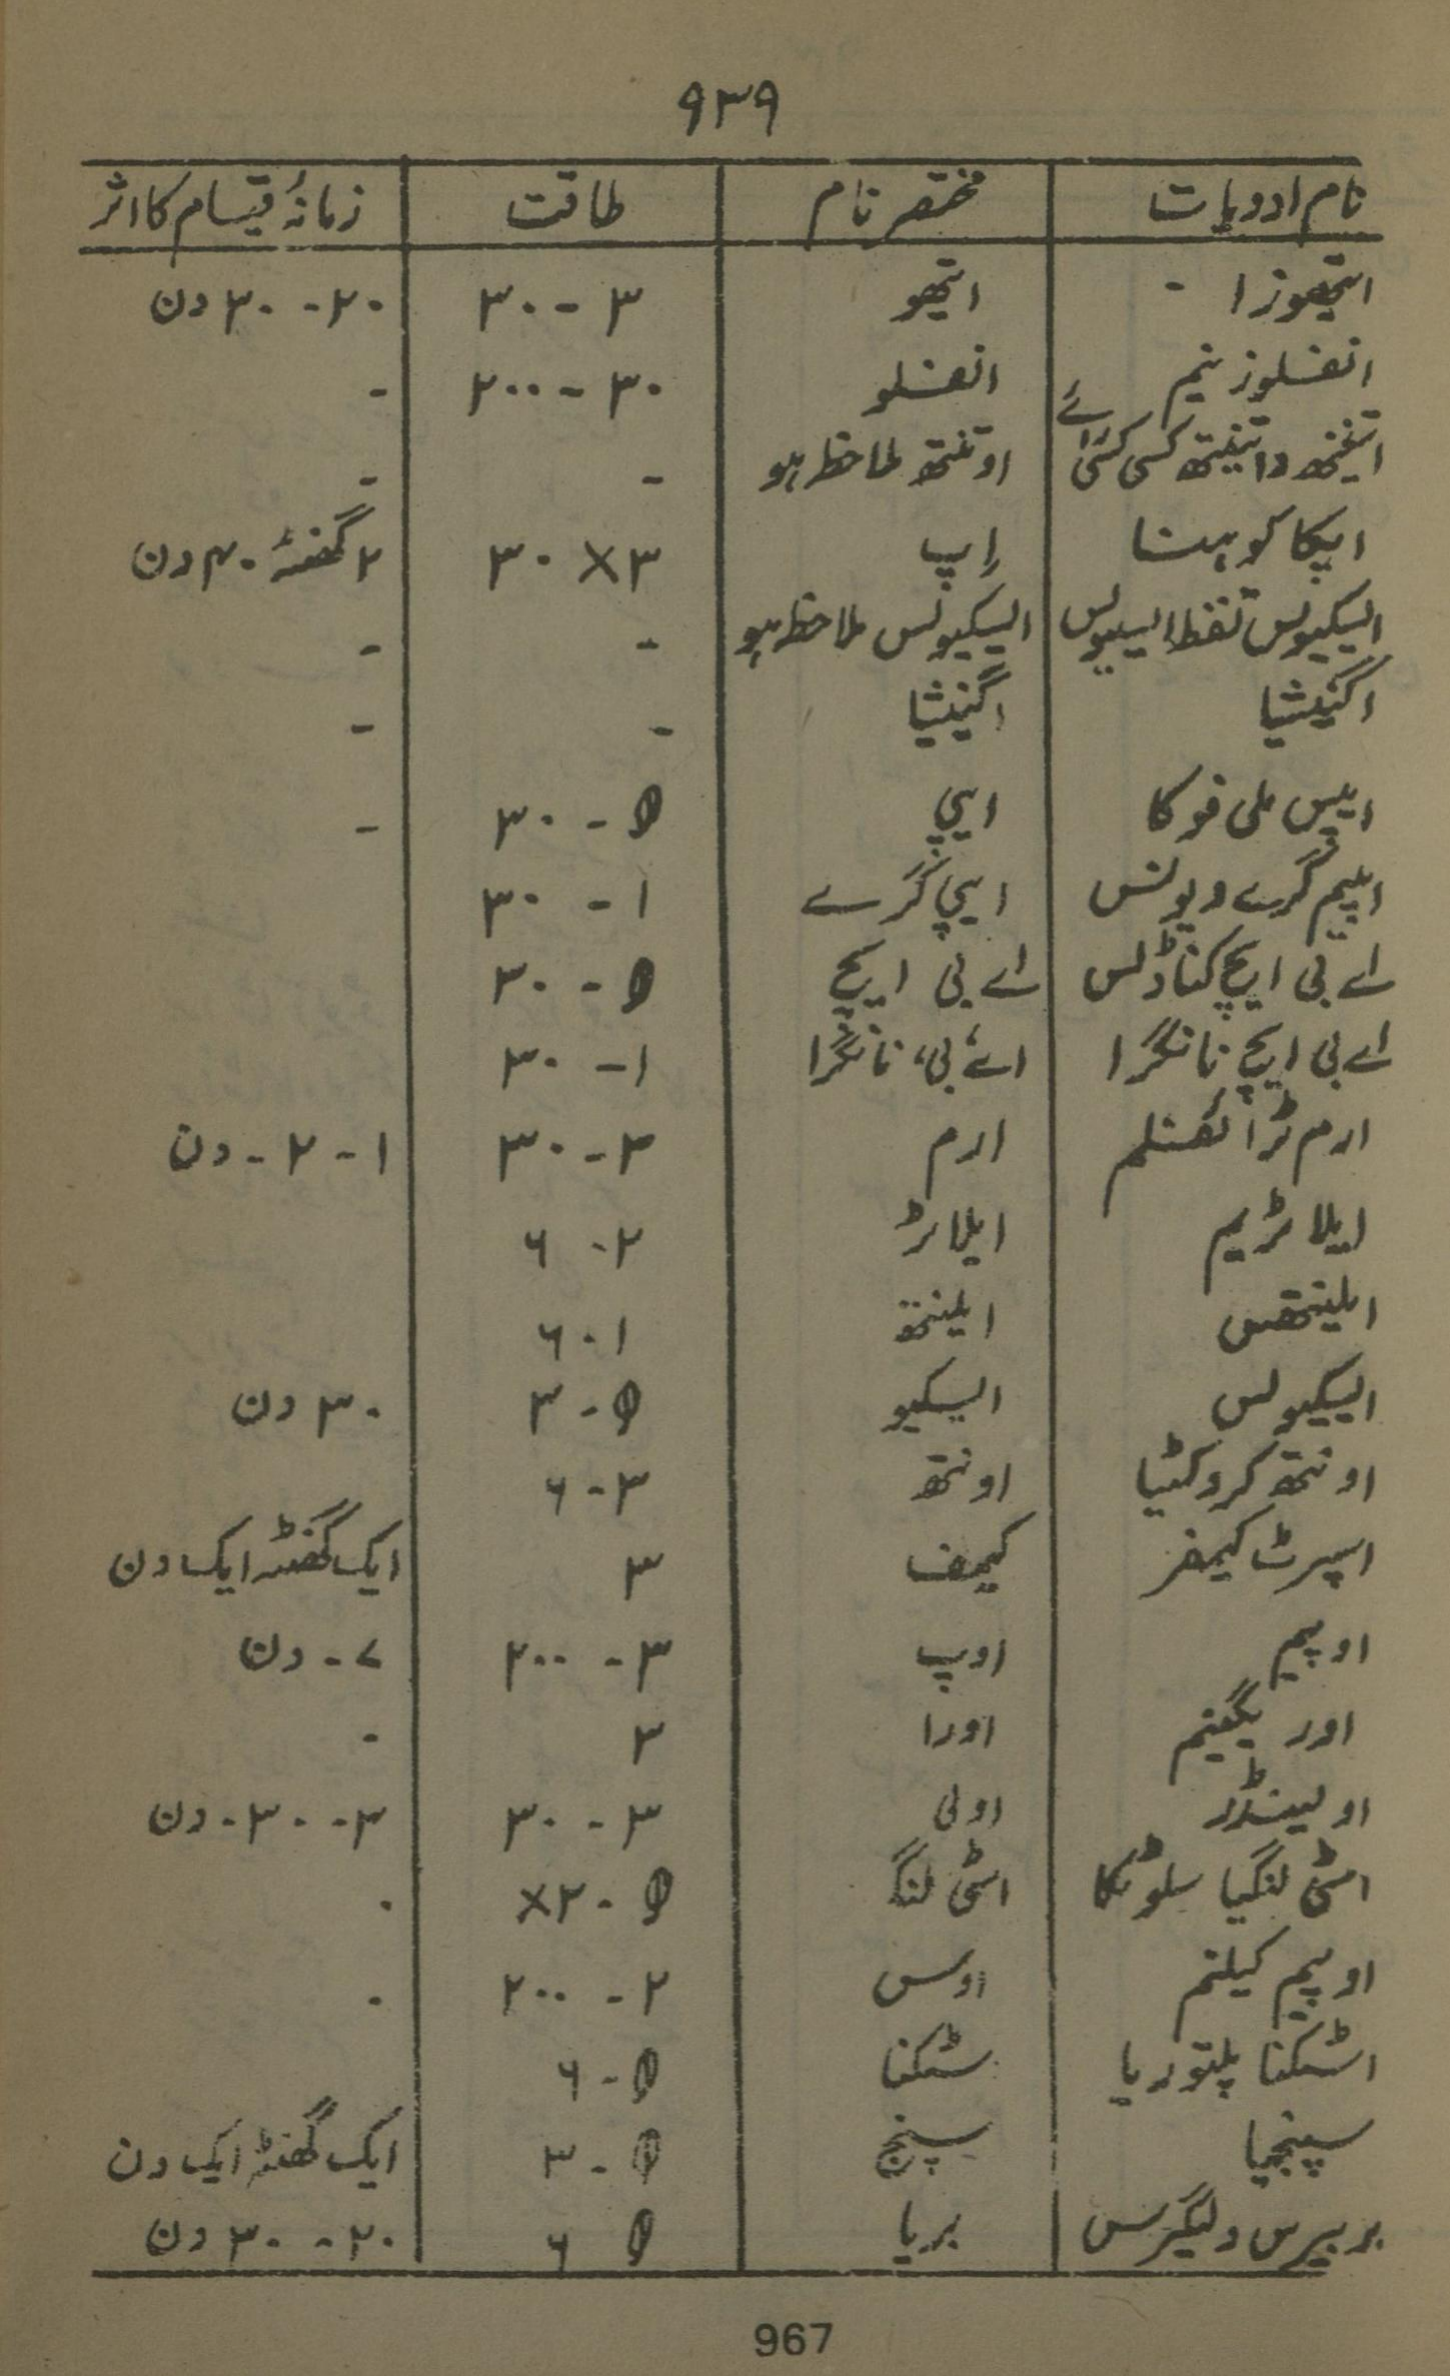 ۹۳۹
نام ادویات مختصر نام طاقت زمانۂ قیام کا اثر
اتیھوزا - اتیھو ۳ - ۳۰ ۲۰ - ۳۰ دن
انفلوزنیم انفلو ۳۰ - ۲۰۰ -
اونتھ ملاحظہ ہو - -
اپیکا کوہنا اِپ ۳ × ۳۰ ۲ گھنٹہ ۴۰ دن
ایسکیولس تلفظ ایسیولس ایسکیولس ملاحظہ ہو - -
اگنیشیا اگنیشیا - -
ایپس ملی فوکا ایپی θ - ۳۰ -
اپیم گرے ویولنس ایپی گرے ۱ - ۳۰
اے بی ایچ کناڈلس اے بی ایچ θ - ۳۰
اے بی ایچ نانگرا اے بی، نانگرا ۱ - ۳۰
ارم ٹرائفلم ارم ۳ - ۳۰ ۱ - ۲ - دن
ایلاٹریم ایلاٹر ۲ - ۶
ایلینتھس ایلینتھ ۱ - ۶
ایسکیولس ایسکیو θ - ۳ ۳۰ دن
اونتھ کروکٹیا اونتھ ۳ - ۶
اسپرٹ کیمفر کیمف ۳ ایک گھنٹہ ایک دن
اوپیم اوپ ۳ - ۲۰۰ ۷ - دن
اوریگینم اورا ۳ -
اولینڈر اولی ۳ - ۳۰ ۳ - ۳۰ - دن
اسٹی لنگیا سلوٹکا اسٹی لنگ θ - ۲× -
اوپیم کیلنم اوس ۲ - ۲۰۰ -
اسٹکنا پلتوریا سٹکنا θ - ۶
سپنجیا سپنج θ - ۳ ایک گھنٹہ ایک دن
بربیرس ولیگرس بربا θ ۶ ۲۰ - ۳۰ دن
967